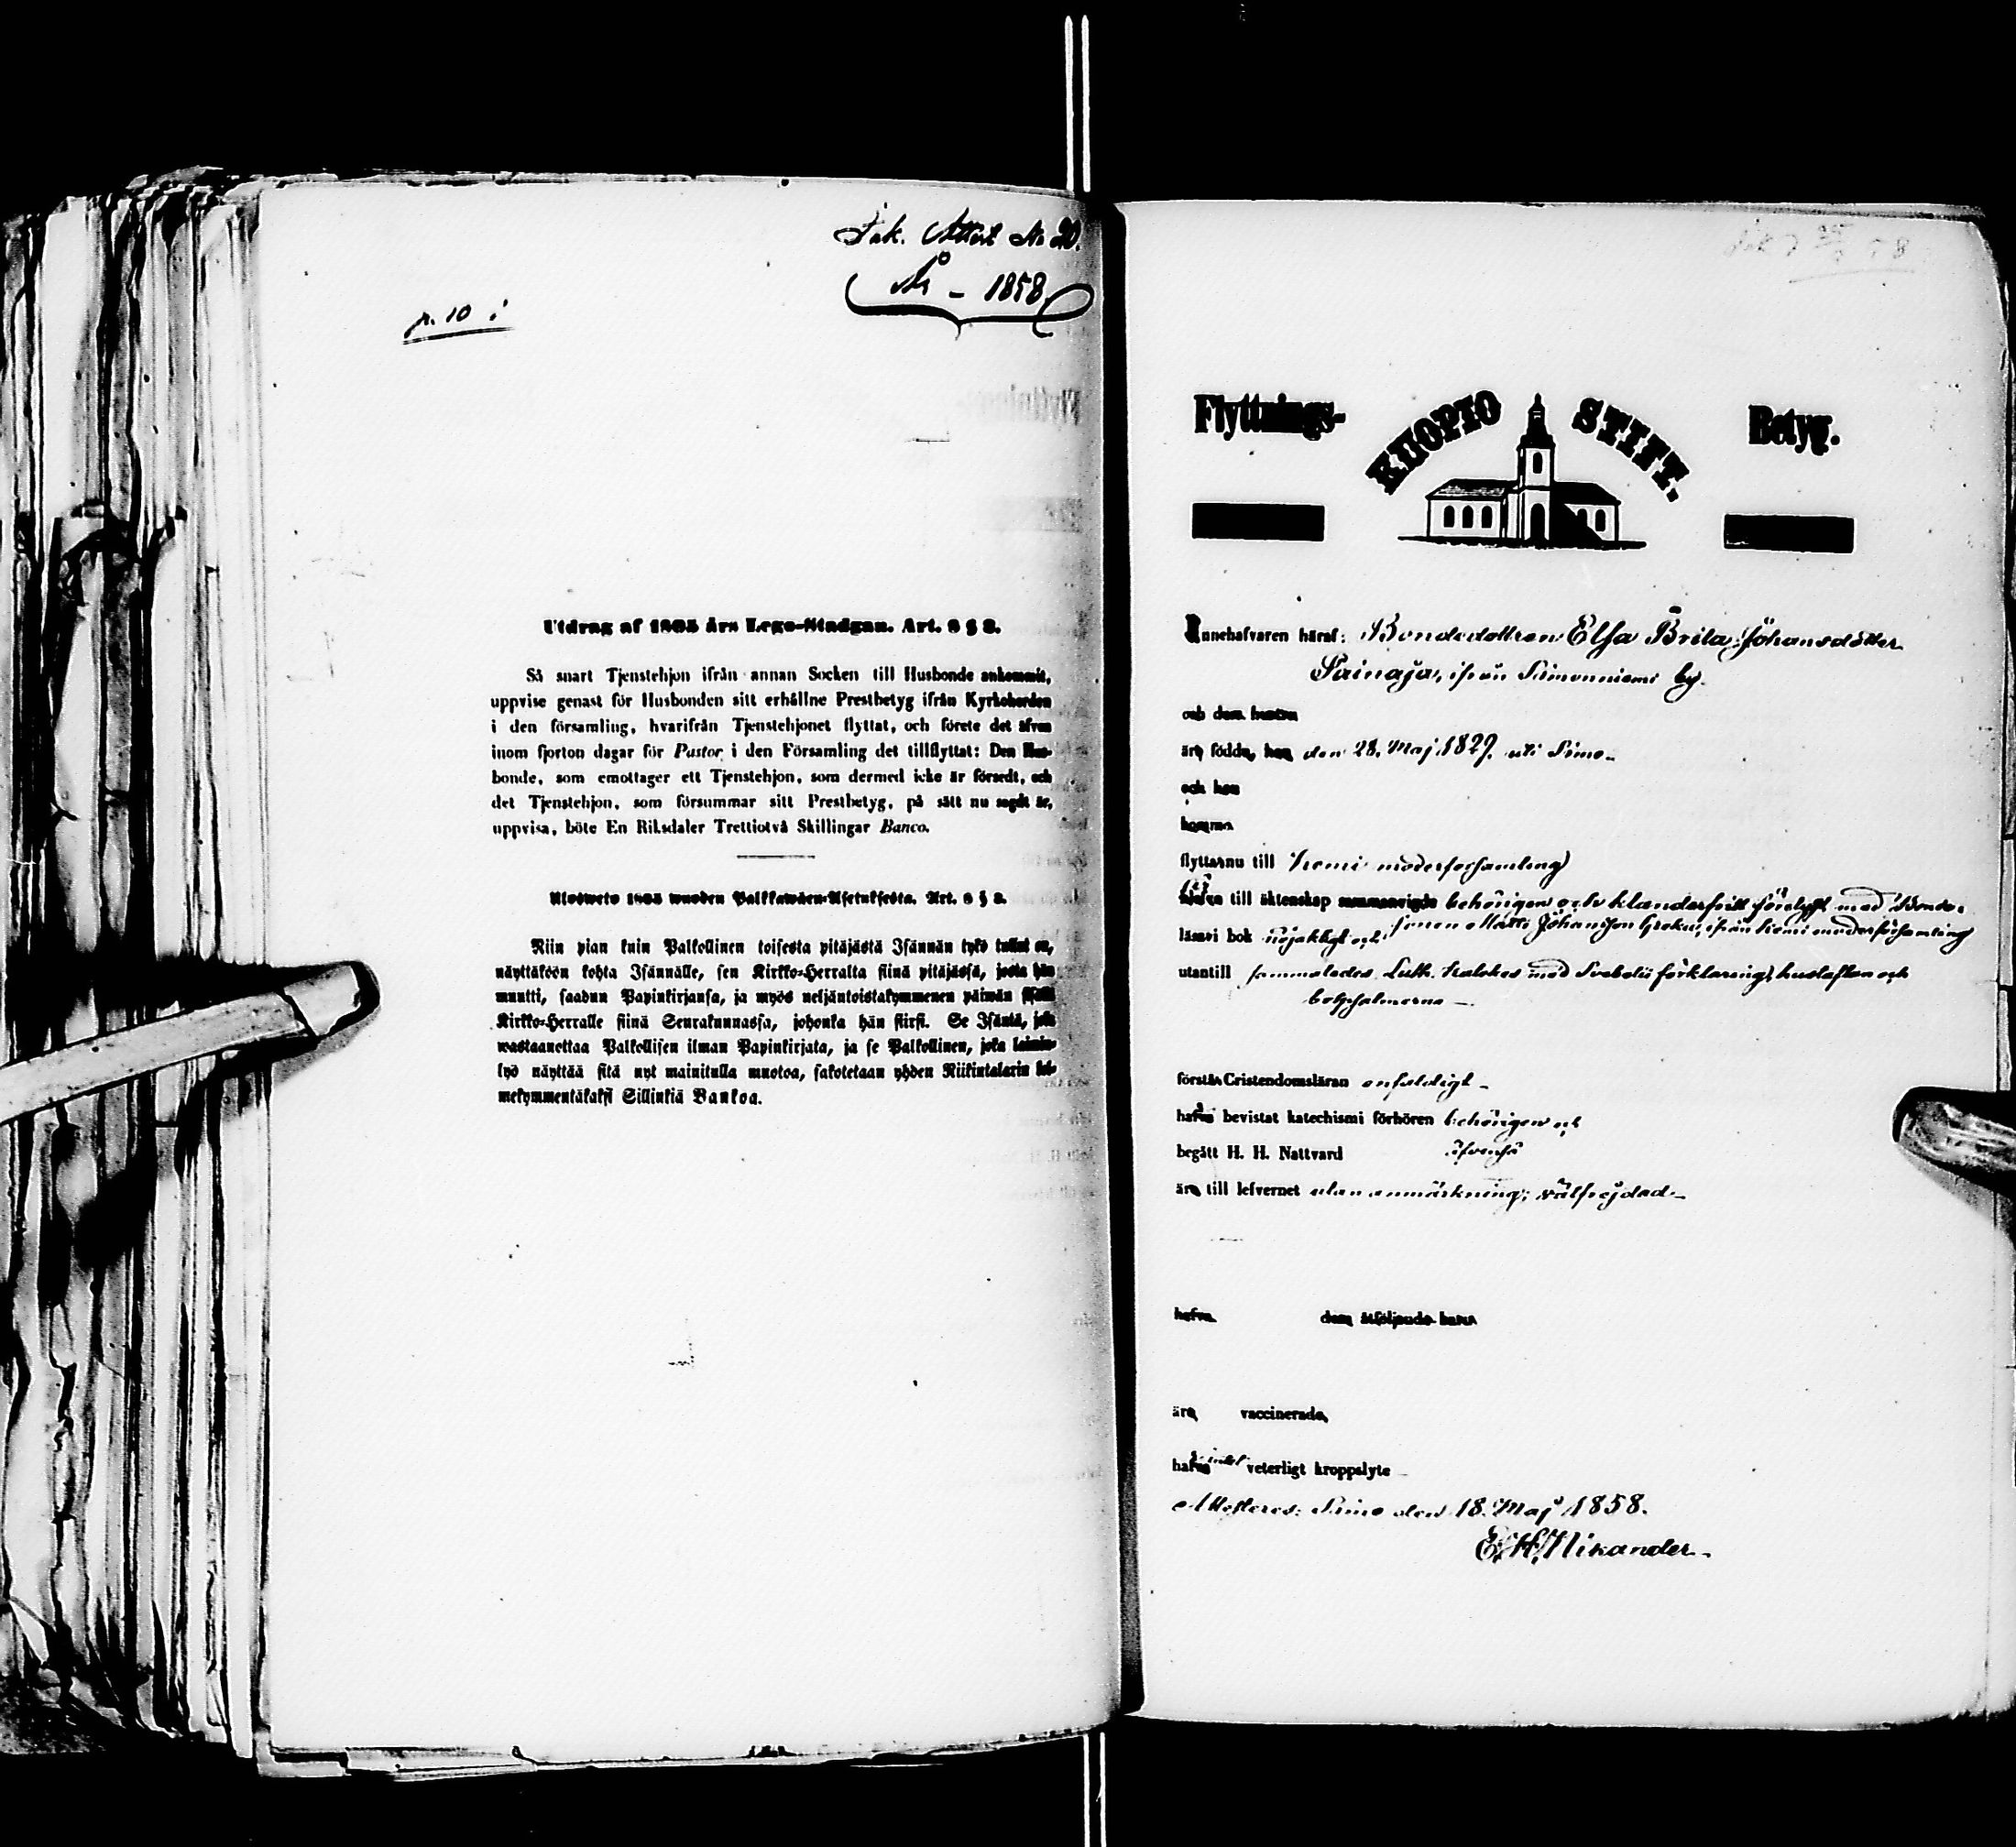 Ink. Attest No 20.
År - 1858
p. 10 i
Utdrag af 1805 års Lego-Stadgan. Art. 8 § 8.
Så snart Tjenstehjon ifrån annan Socken till Husbonde ankommit,
uppvise genast för Husbonden sitt erhållne Prestbetyg ifrån Kyrkoherden
i den församling, hvarifrån Tjenstehjonet flyttat, och förete det äfven
inom fjorton dagar för Pastor i den Församling det tillflyttat: Den Hus-
bonde, som emottager ett Tjenstehjon, som dermed icke är försedt, och
det Tjenstehjon, som försummar sitt Prestbetyg, på sätt nu sagdt är,
uppvisa, böte En Riksdaler Trettiotvå Skillingar Banco.
Ulosweto 1805 wuoden Palkkawäen-Asetuksesta. Art. 8 § 8.
Niin pian kuin Palkollinen toisesta pitäjästä Isännän tykö tullut on,
näyttäköön kohta Isännälle, sen Kirkko-Herralta siinä pitäjässä, josta hän
muutti, saadun Papinkirjansa, ja myös neljäntoistakymmenen päiwän sisällä
Kirkko-Herralle siinä Seurakunnassa, johonka hän siirsi. Se Isäntä, joka
wastaanottaa Palkollisen ilman Papinkirjata, ja se Palkollinen, joka laimin-
lyö näyttää sitä nyt mainitulla muotoa, sakotetaan yhden Riikintalarin kol-
mekymmentäkaksi Sillinkiä Bankoa.
Flyttnings- KUOPIO STIFT. Betyg.
Innehafvaren häraf: Bondedottren Elsa Brita Johansdotter
Sainaja, ifrån Simonniemi by.
och dess hustru
äro födde, han den 28. Maj 1829. uti Simo.
och hon
komme
flytta nu till Kemi moderförsamling
till äktenskap sammanvigde behörigen och klanderfritt förelyst med Bonde-
sonen Matts Johansson Groku, ifrån Kemi moderförsamling
läsa i bok nöjaktigt och
utantill sammaledes Luth. kateches med Svebelii förklaring, hustaflan och
botpsalmerna —
förstår Cristendomsläran enfaldigt —
hafva bevistat katechismi förhören behörigen och
begått H. H. Nattvard äfvenså
äro till lefvernet utan anmärkning; välfrejdad —
hafva dem åtföljande barn
äro vaccinerade,
hafva intet veterligt kroppslyte
Attesteras: Simo den 18. Maj 1858.
E. H. Nikander.